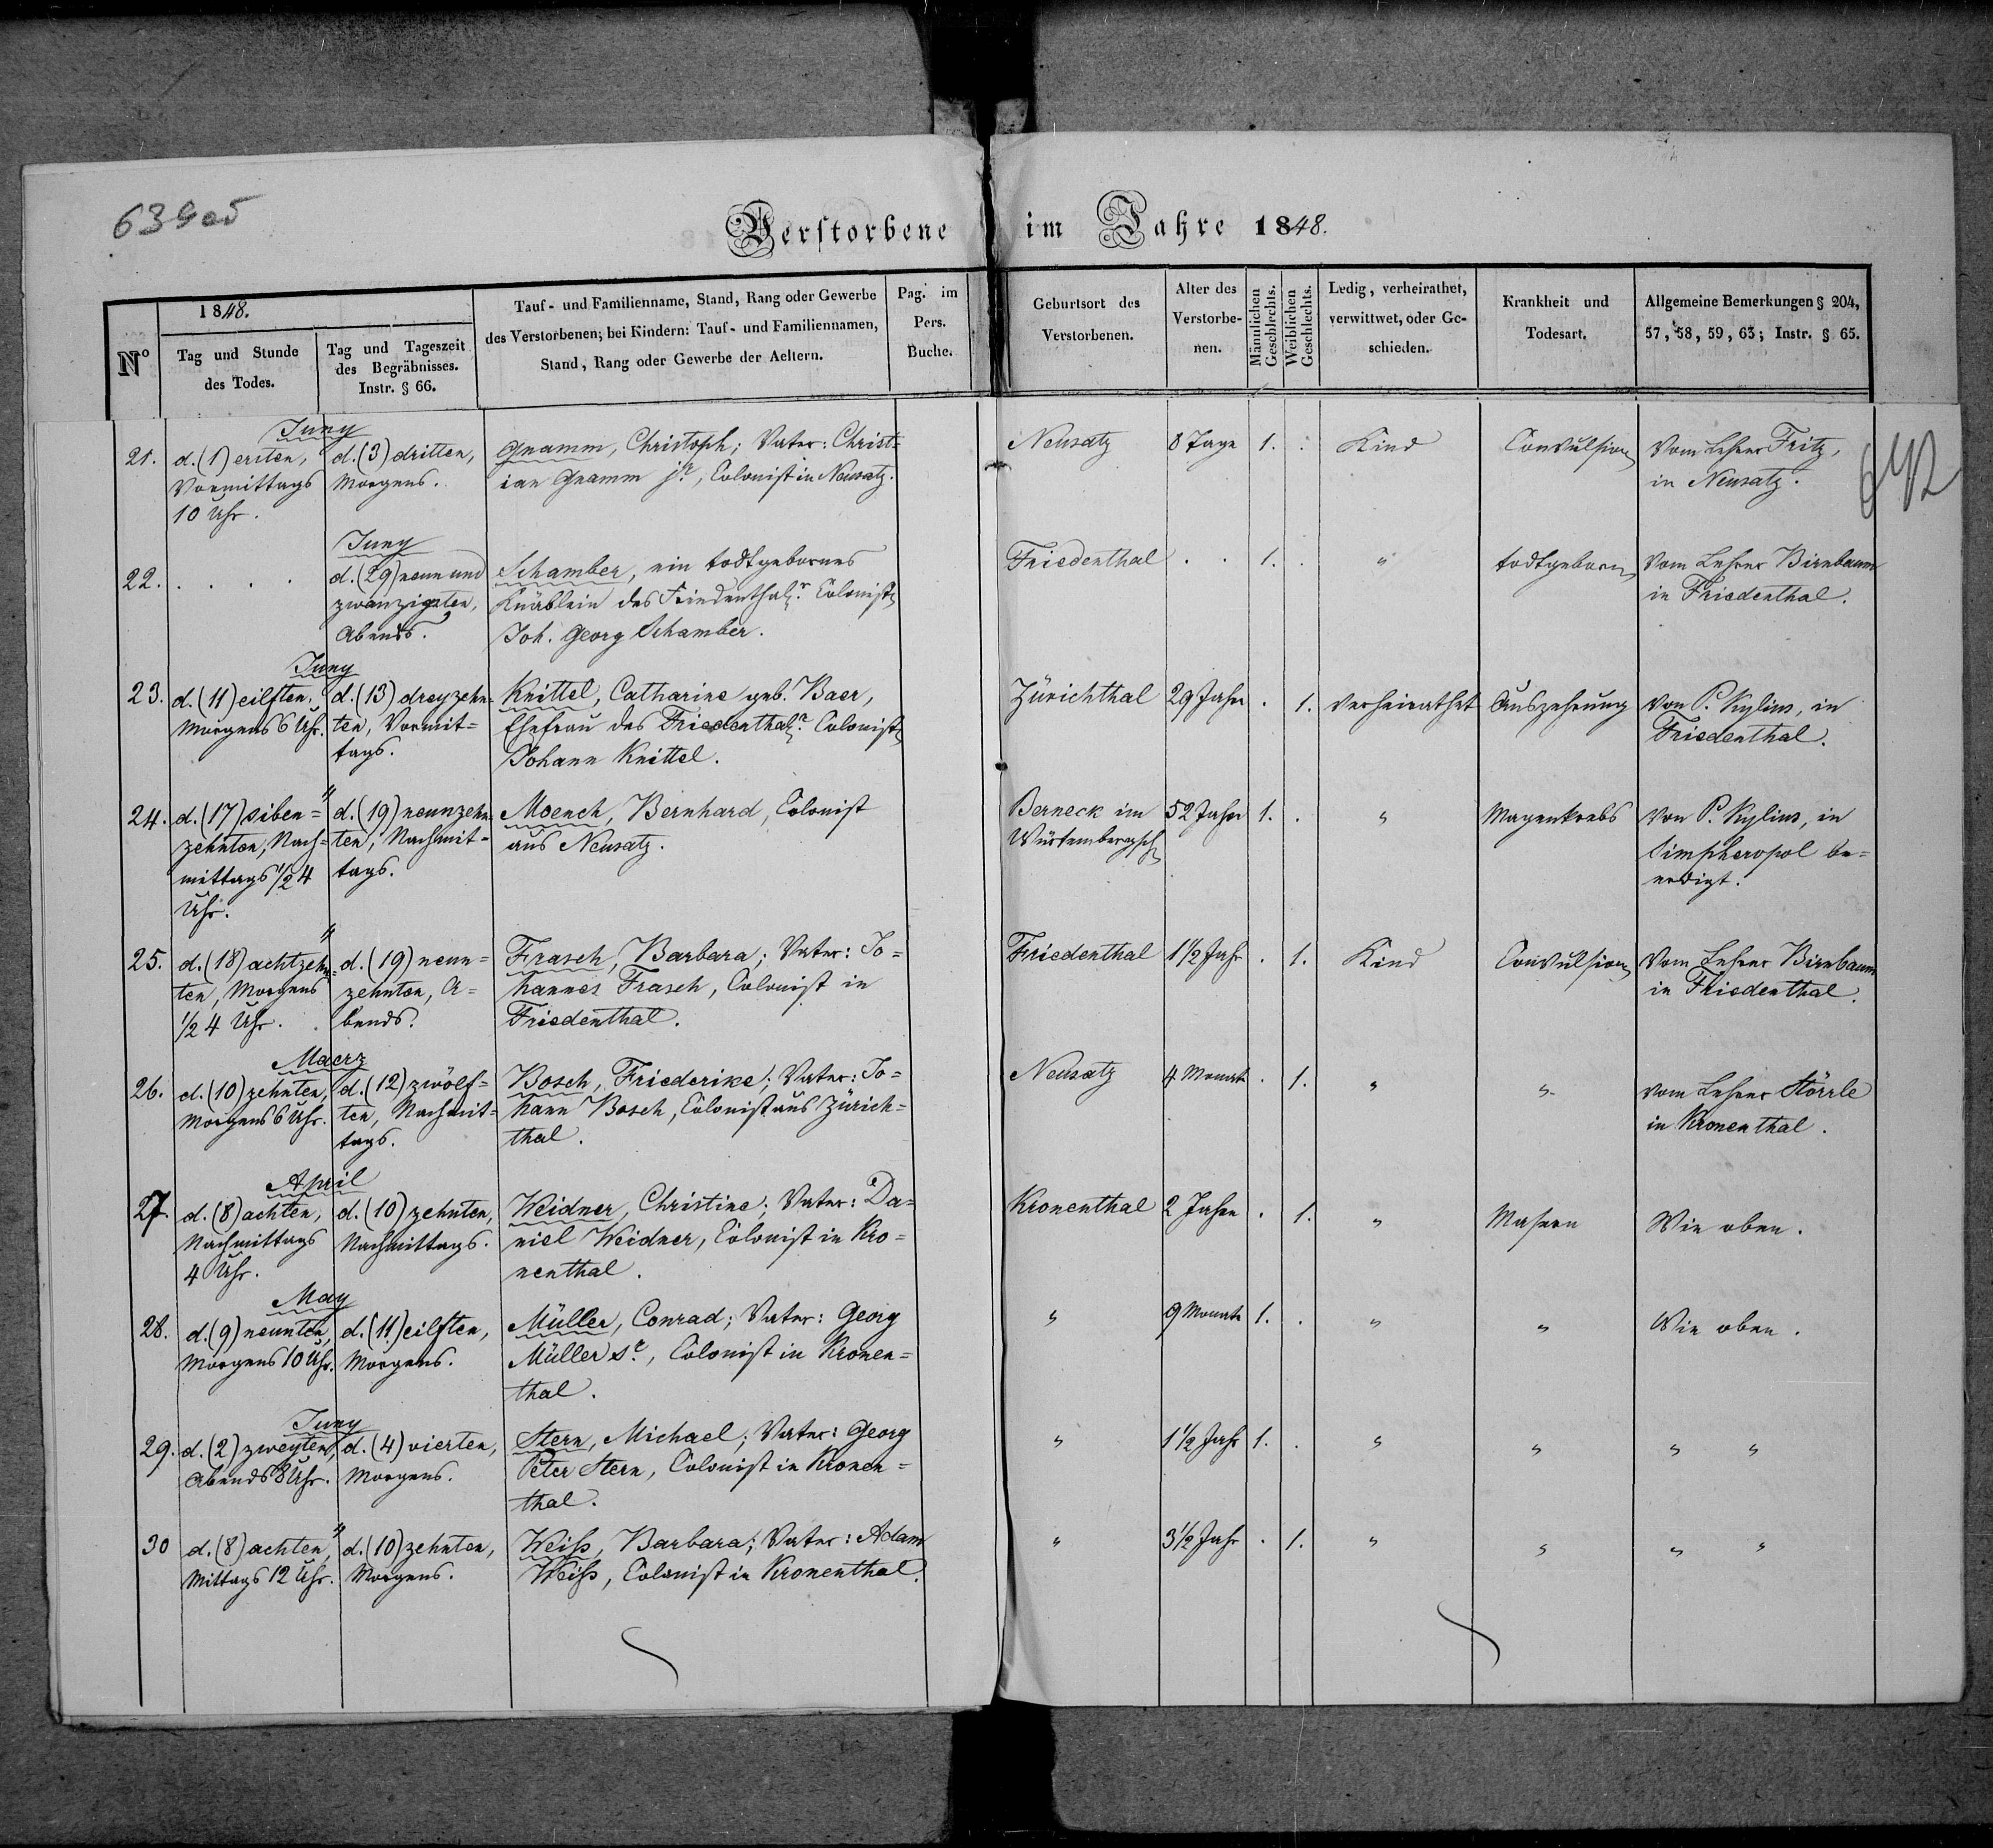 639 об
Verstorbene im Jahre 1848.
N°
1848.
Tag und Stunde des Todes.
Tag und Tageszeit des Begräbnisses. Instr. § 66.
Tauf- und Familienname, Stand, Rang oder Gewerbe des Verstorbenen; bei Kindern: Tauf- und Familiennamen, Stand, Rang oder Gewerbe der Aeltern.
Pag. im Pers. Buche.
Geburtsort des Verstorbenen.
Alter des Verstorbe- nen.
Männlichen Geschlechts.
Weiblichen Geschlechts.
Ledig, verheirathet, verwittwet, oder Ge- schieden.
Krankheit und Todesart.
Allgemeine Bemerkungen § 204, 57, 58, 59, 63; Instr. § 65.
Juny
21. d. (1) ersten, d. (3) dritten, Gnamm, Christoph; Vater: Christ= Neusatz 8 Tage 1. . Kind Convulsion Vom Lehrer Fritz,
Vormittags Morgens. ian Gnamm jr., Colonist in Neusatz. in Neusatz.
10 Uhr.
Juny
22. . . . . d. (29) neun und Schamber, ein todtgebornes Friedenthal . . 1. . " todtgeboren Vom Lehrer Birnbaum
zwanzigsten, Knäblein des Friedenthalr. Colonist in Friedenthal.
Abends. Joh. Georg Schamber.
Juny
23. d. (11) eilften, d. (13) dreyzehn- Knittel, Catharine geb. Baer, Zürichthal 29 Jahr . 1. Verheirathet Auszehrung Von P. Kylius, in
Morgens 6 Uhr. ten, Vormit= Ehefrau des Friedenthalr. Colonist Friedenthal.
tags. Johann Knittel.
"
24. d. (17) siben= d. (19) neunzehn- Moench, Bernhard, Colonist Berneck im 52 Jahr 1. . " Magenkrebs Von P. Kylius, in
zehnten, Nach= ten, Nachmit= aus Neusatz. Würtembergsch Simpheropol be=
mittags 1/2 4 tags. erdigt.
Uhr.
"
25. d. (18) achtzehn= d. (19) neun= Frasch, Barbara; Vater: Jo= Friedenthal 1 1/2 Jahr . 1. Kind Convulsion Vom Lehrer Birnbaum
ten, Morgens zehnten, A= hannes Frasch, Colonist in in Friedenthal.
1/2 4 Uhr. bends. Friedenthal.
Maerz
26. d. (10) zehnten, d. (12) zwölf= Bosch, Friederike; Vater: Jo= Neusatz 4 Monat . 1. " " Vom Lehrer Störrle
Morgens 6 Uhr. ten, Nachmit= hann Bosch, Colonist aus Zürich= in Kronenthal.
tags. thal.
April
27. d. (8) achten, d. (10) zehnten, Weidner, Christine; Vater: Da= Kronenthal 2 Jahre . 1. " Masern Wie oben.
Nachmittags Nachmittags. niel Weidner, Colonist in Kro=
4 Uhr. nenthal.
May
28. d. (9) neunten, d. (11.) eilften, Müller, Conrad; Vater: Georg " 9 Monate 1. . " " Wie oben.
Morgens 10 Uhr. Morgens. Müller sr., Colonist in Kronen=
thal.
Juny
29. d. (2) zweyten, d. (4) vierten, Stern, Michael; Vater: Georg " 1 1/2 Jahr 1. . " " " "
Abends 8 Uhr. Morgens. Peter Stern, Colonist in Kronen=
thal.
"
30 d. (8) achten, d. (10) zehnten, Weiß, Barbara; Vater: Adam " 3 1/2 Jahr . 1. " " " "
Mittags 12 Uhr. Morgens. Weiß, Colonist in Kronenthal.